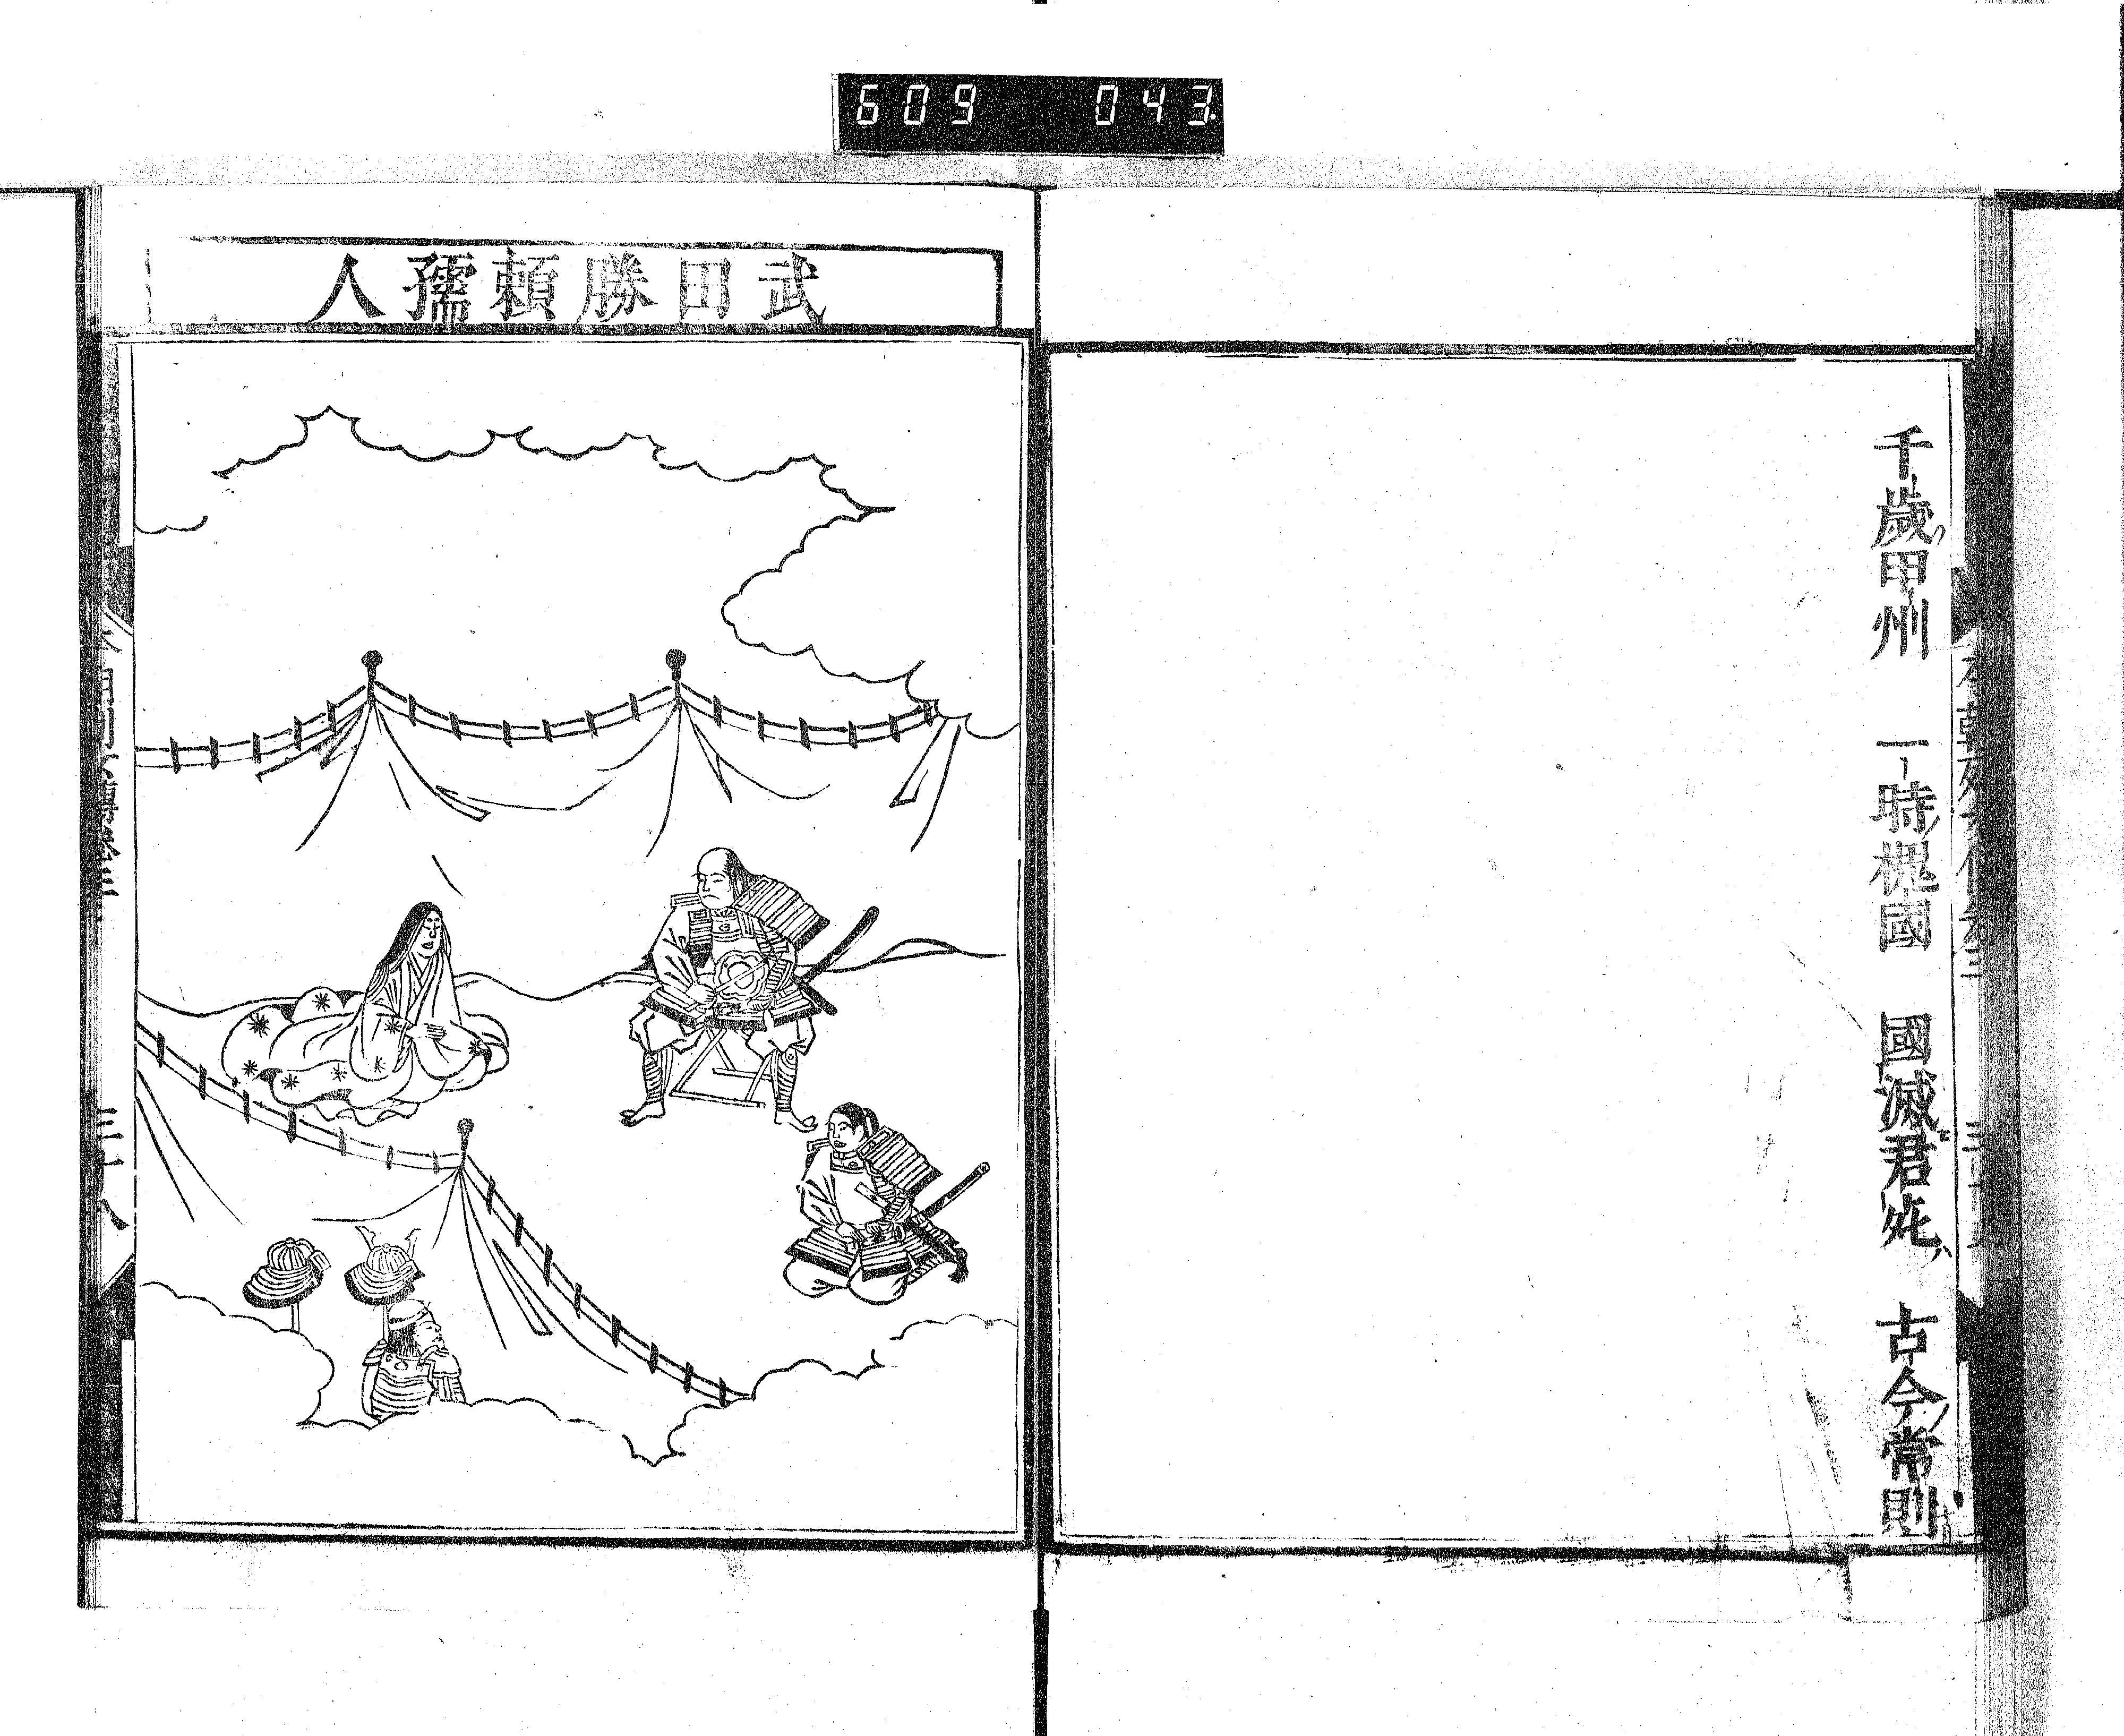 609 043
千歲甲州 一時槐國 國滅君死 古今常則
武田勝頼孺人
三十八